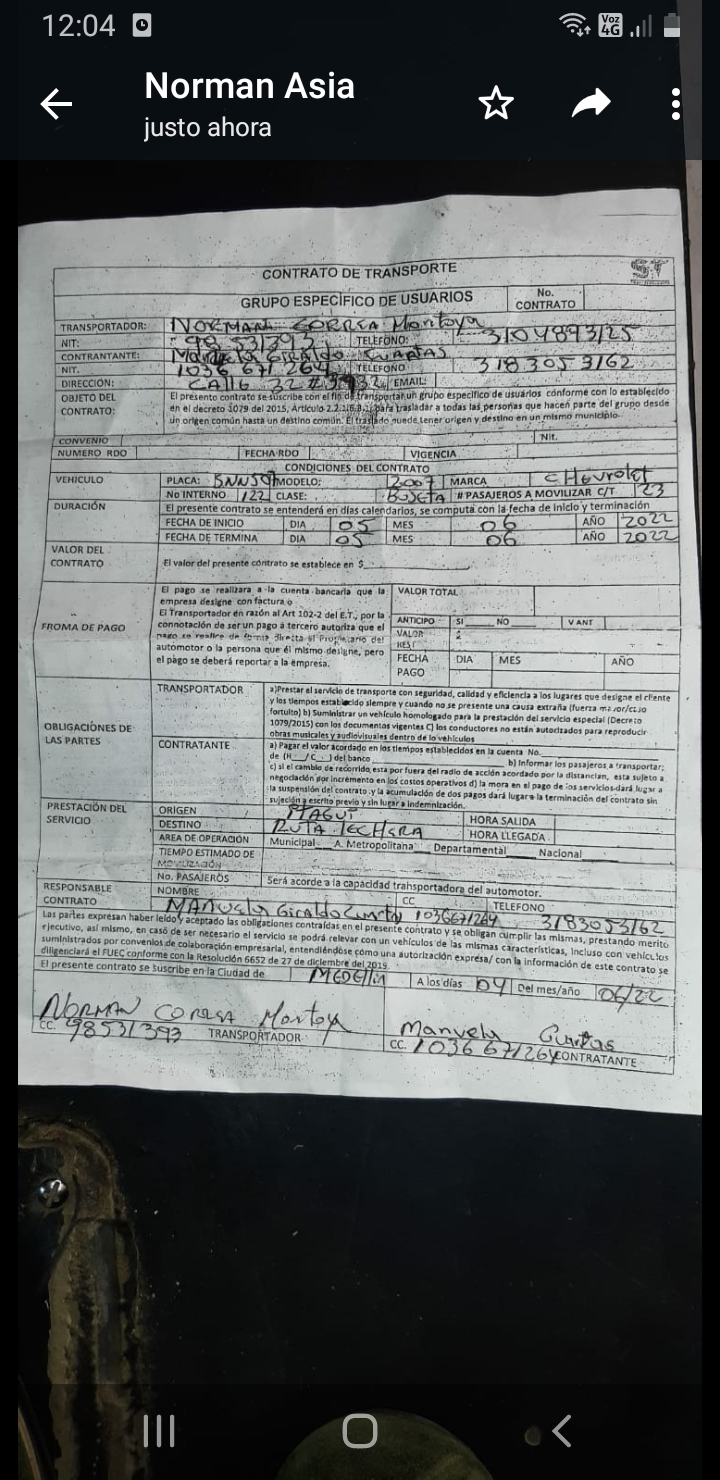 12:04
Voz 4G
Norman Asia
justo ahora
CONTRATO DE TRANSPORTE
GRUPO ESPECÍFICO DE USUARIOS No. CONTRATO
TRANSPORTADOR: NORMAN CORREA Montoya
NIT: 98531393 TELEFONO: 3104893125
CONTRANTANTE: Manuela GIRALDO CUARTAS
NIT. 1036 671 264 TELEFONO 3183053162
DIRECCIÓN: CAll6 32 # EMAIL:
OBJETO DEL CONTRATO: El presente contrato se suscribe con el fin de transportar un grupo especifico de usuarios conforme con lo establecido
en el decreto 1079 del 2015, Artículo para trasladar a todas las personas que hacen parte del grupo desde
un origen común hasta un destino común. El traslado puede tener origen y destino en un mismo municipio.
CONVENIO Nit.
NUMERO RDO FECHA RDO VIGENCIA
CONDICIONES DEL CONTRATO
VEHICULO PLACA: MODELO: 2007 MARCA CHevrolet
No INTERNO 122 CLASE: BUSETA # PASAJEROS A MOVILIZAR C/T 23
DURACIÓN El presente contrato se entenderá en días calendarios, se computa con la fecha de inicio y terminación
FECHA DE INICIO DIA 05 MES 06 AÑO 2022
FECHA DE TERMINA DIA 05 MES 06 AÑO 2022
VALOR DEL CONTRATO El valor del presente contrato se establece en $
FROMA DE PAGO El pago se realizara a la cuenta bancaria que la
empresa designe con factura o
El Transportador en razón al Art 102-2 del E.T., por la
connotación de ser un pago a tercero autoriza que el
pago se realice de forma directa al Propietario del
automotor o la persona que él mismo designe, pero
el pago se deberá reportar a la empresa.
VALOR TOTAL
ANTICIPO SI NO V ANT
VALOR REST
FECHA PAGO DIA MES AÑO
OBLIGACIÓNES DE LAS PARTES
TRANSPORTADOR a)Prestar el servicio de transporte con seguridad, calidad y eficiencia a los lugares que designe el cliente
y los tiempos establecido siempre y cuando no se presente una causa extraña (fuerza mayor/caso
fortuito) b) Suministrar un vehículo homologado para la prestación del servicio especial (Decreto
1079/2015) con los documentos vigentes C) los conductores no están autorizados para reproducir
obras musicales y audiovisuales dentro de lo vehículos
CONTRATANTE a) Pagar el valor acordado en los tiempos establecidos en la cuenta No.
de (H__/C__) del banco b) Informar los pasajeros a transportar;
c) si el cambio de recorrido esta por fuera del radio de acción acordado por la distancian, esta sujeto a
negociación por incremento en los costos operativos d) la mora en el pago de los servicios dará lugar a
la suspensión del contrato y la acumulación de dos pagos dará lugar a la terminación del contrato sin
sujeción a escrito previo y sin lugar a indemnización.
PRESTACIÓN DEL SERVICIO ORIGEN ITAGUI HORA SALIDA
DESTINO RUTA LECHERA HORA LLEGADA
AREA DE OPERACIÓN Municipal A. Metropolitana Departamental Nacional
TIEMPO ESTIMADO DE MOVILIZACIÓN
No. PASAJEROS Será acorde a la capacidad transportadora del automotor.
RESPONSABLE CONTRATO NOMBRE CC TELEFONO
MANuela Giraldo Cuartas 1036671264 3183053162
Las partes expresan haber leído y aceptado las obligaciones contraídas en el presente contrato y se obligan cumplir las mismas, prestando merito
ejecutivo, así mismo, en casó de ser necesario el servicio se podrá relevar con un vehículos de las mismas características, incluso con vehículos
suministrados por convenios de colaboración empresarial, entendiéndose cómo una autorización expresa/ con la información de este contrato se
diligenciará el FUEC conforme con la Resolución 6652 de 27 de diciembre del 2019.
El presente contrato se suscribe en la Ciudad de MEDEllin A los días 04 Del mes/año 06/22
NORMAN CORREA Montoya Manuela Cuartas
CC. 98531393 TRANSPORTADOR CC. 1036671264 CONTRATANTE